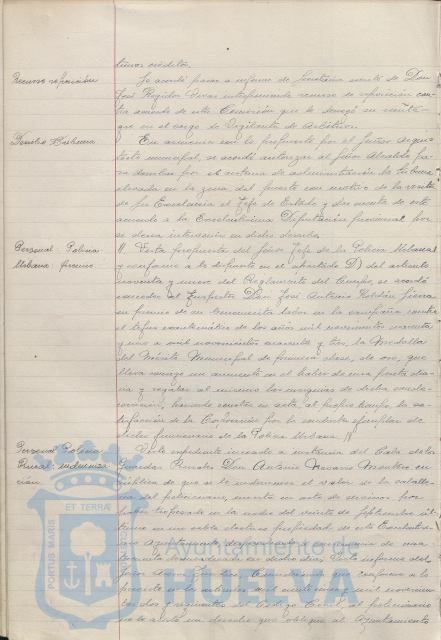 tinos créditos.
Recurso reposición
Se acordó pasar a informe de Secretaría escrito de Don
José Regidor Vivas interponiendo recurso de reposición con-
tra acuerdo de esta Comisión que le denegó su reinte-
gro en el cargo de Vigilante de Arbitrios.
Derribo Tribuna
En armonía con lo propuesto por el Señor Arqui-
tecto municipal, se acordó autorizar al Señor Alcalde pa-
ra derribar por el sistema de administración la tribuna
elevada en la zona del puerto con motivo de la visita
de Su Excelencia el Jefe de Estado y dar cuenta de este
acuerdo a la Excelentísima Diputación provincial por
si desea intervención en dicho derribo.
Personal Policía
Urbana premio
Vista propuesta del Señor Jefe de la Policía Urbana
y conforme a lo dispuesto en el apartado D) del artículo
noventa y nueve del Reglamento del Cuerpo, se acordó
conceder al Don José Antonio Roldán
en premio de su labor en la campaña contra
el tifus exantemático de los años mil novecientos cuarenta
y uno a mil novecientos cuarenta y tres, la Medalla
del Mérito Municipal de primera clase, de oro, que
lleva anejo un aumento en el haber de una peseta dia-
ria y regalar al mismo las insignias de dicha conde-
coración, haciendo constar en acta, al propio tiempo, la sa-
tisfacción de la Corporación por la conducta ejemplar de
dicho funcionario de la Policía Urbana.
Personal Policía
Rural: indemniza
ción
Visto expediente incoado a instancia del Cabo de los
Guardas Rurales Don Antonio Navarro en
súplica de que se le indemnice el valor de la caballe-
ría del peticionario, muerta en acto de servicio por
haber tropezado en la noche del veinte de Septiembre úl-
timo en un cable eléctrico propiedad de este Excelentísi-
mo Ayuntamiento
en dicho día. Visto informe del
Señor
conforme a lo
prevenido en los artículos mil
tos dos y siguientes del Código Civil, al peticionario
no le asiste un derecho que obligue al Ayuntamiento
PORTUS MARIS
ET TERRÆ
Ayuntamiento de
HUELVA